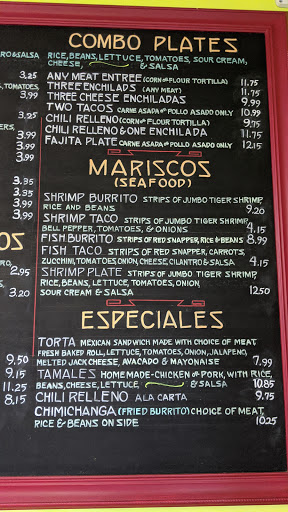 COMBO PLATES
RO & SALSA
RICE, BEANS, LETTUCE, TOMATOES, SOUR CREAM,
CHEESE, & SALSA
3.25
ANY MEAT ENTREE (CORN OR FLOUR TORTILLA) 11.75
, TOMATOES,
3.99
THREE ENCHILADS (ANY MEAT) 11.75
3.99
THREE CHEESE ENCHILADAS 9.99
TWO TACOS CARNE ASADA OR POLLO ASADO ONLY 10.99
3.25
CHILI RELLENO (CORN OR FLOUR TORTILLA) 9.75
ERS,
3.99
CHILI RELLENO & ONE ENCHILADA 11.75
3.99
FAJITA PLATE CARNE ASADA OR POLLO ASADO ONLY 12.15
3.99
MARISCOS
(SEAFOOD)
3.95
3.95
SHRIMP BURRITO STRIPS OF JUMBO TIGER SHRIMP,
3.99
RICE AND BEANS 9.20
3.99
SHRIMP TACO STRIPS OF JUMBO TIGER SHRIMP,
BELL PEPPER, TOMATOES, & ONIONS 4.15
OS
FISH BURRITO STRIPS OF RED SNAPPER, RICE & BEANS 8.99
FISH TACO STRIPS OF RED SNAPPER, CARROTS,
RO,
2.95
ZUCCHINI, TOMATOES, ONION, CHEESE, CILANTRO & SALSA 4.15
SHRIMP PLATE STRIPS OF JUMBO TIGER SHRIMP,
S,
RICE, BEANS, LETTUCE, TOMATOES, ONION,
3.20
SOUR CREAM & SALSA 12.50
ESPECIALES
TORTA MEXICAN SANDWICH MADE WITH CHOICE OF MEAT,
FRESH BAKED ROLL, LETTUCE, TOMATOES, ONION, JALAPENO,
9.50
MELTED JACK CHEESE, AVOCADO & MAYONAISE 7.99
9.15
TAMALES HOMEMADE-CHICKEN OR PORK, WITH RICE,
11.25
BEANS, CHEESE, LETTUCE & SALSA 10.85
8.15
CHILI RELLENO A LA CARTA 9.75
CHIMICHANGA (FRIED BURRITO) CHOICE OF MEAT,
RICE & BEANS ON SIDE 10.25